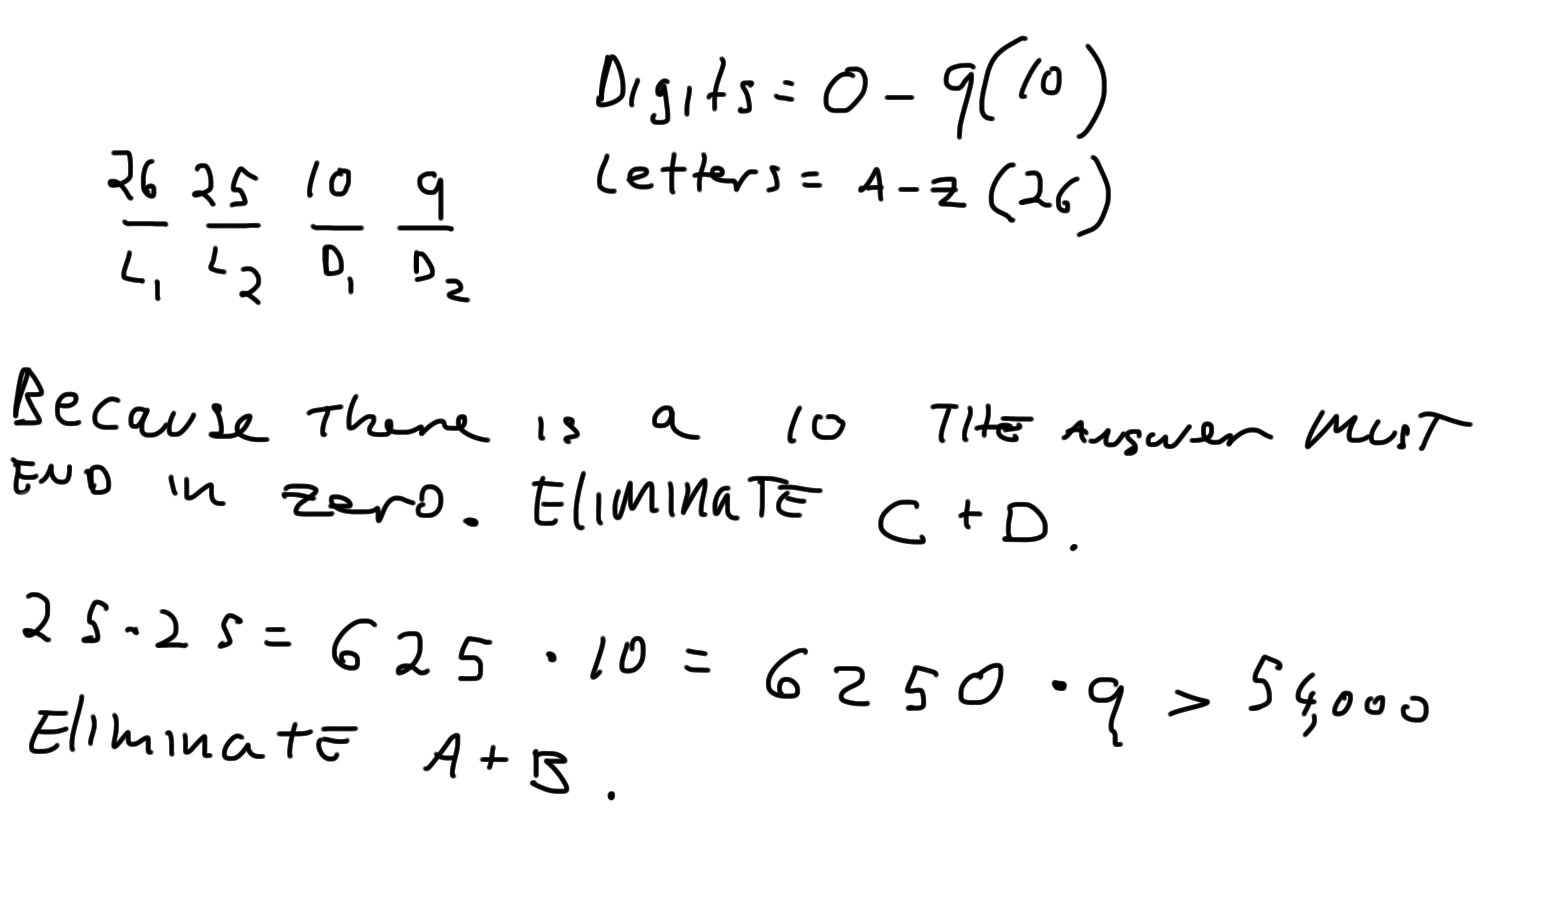 Digits = 0 - 9 (10)
Letters = A - Z (26)
26 25 10 9
L1 L2 D1 D2
Because there is a 10 THE Answer MUST
END in zero. EliMINaTE C + D.
25 . 25 = 625 . 10 = 6250 . 9 > 54,000
EliminatE A + B.